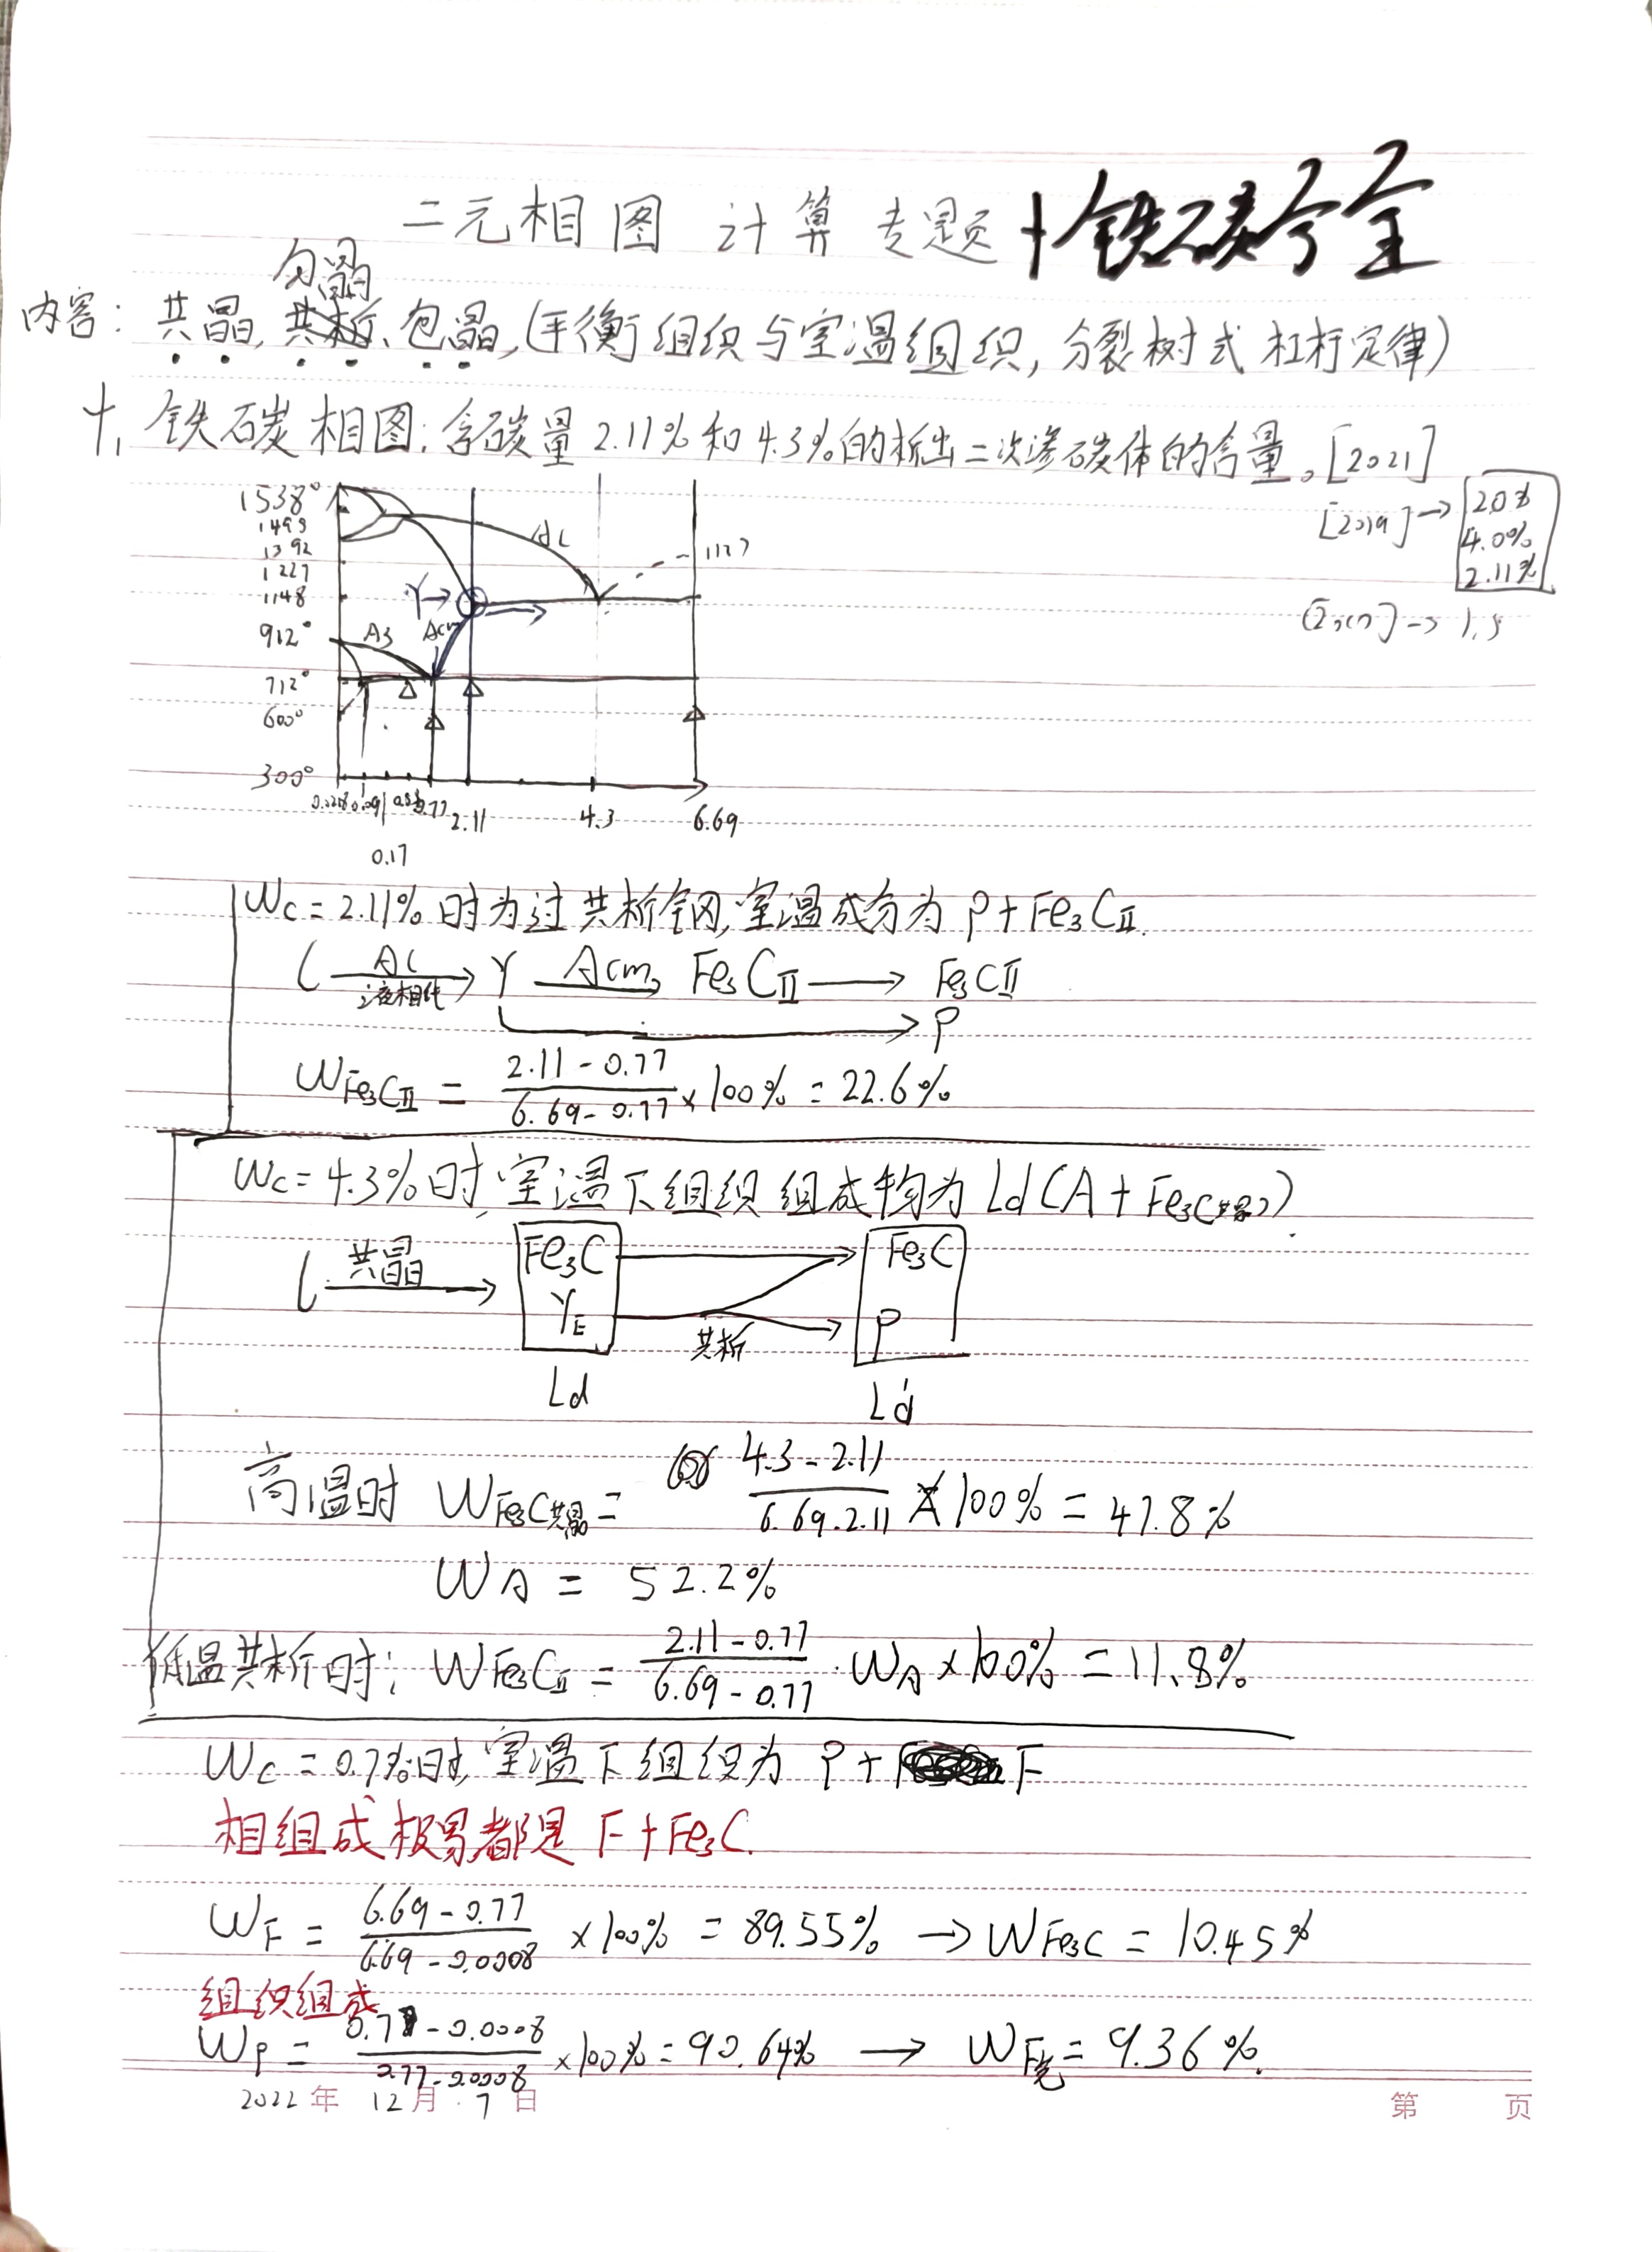 二元相图 计算 专题 + 铁碳合金
匀晶
内容: 共晶, 共析、包晶, (平衡组织与室温组织, 分裂树式 杠杆定律)
十、铁碳相图: 含碳量 2.11% 和 4.3% 的析出二次渗碳体的含量。[2021]
[2019] → 2.0%
4.0%
2.11%
1538°
1495
1392
1227
1148
912°
712°
600°
300°
AC
1127
γ→
A3
Acm
0.0218 0.09 0.53 0.77 2.11 4.3 6.69
0.17
Wc = 2.11% 时为过共析钢, 室温成分为 P + Fe₃CⅡ.
L AC→ γ Acm→ Fe₃CⅡ → Fe₃CⅡ
液相线
→ P
W Fe₃CⅡ = (2.11 - 0.77)/(6.69 - 0.77) × 100% = 22.6%
Wc = 4.3% 时, 室温下组织组成均为 Ld (A + Fe₃C(共晶)).
L 共晶→ Fe₃C → Fe₃C
γE 共析→ P
Ld L'd
高温时 W Fe₃C共晶 = (4.3 - 2.11)/(6.69 - 2.11) × 100% = 47.8%
W A = 52.2%
低温共析时: W Fe₃CⅡ = (2.11 - 0.77)/(6.69 - 0.77) · W A × 100% = 11.8%
Wc = 0.7% 时, 室温下组织为 P + F
相组成 都是 F + Fe₃C.
W F = (6.69 - 0.77)/(6.69 - 0.0008) × 100% = 89.55% → W Fe₃C = 10.45%
组织组成
W P = (0.7 - 0.0008)/(0.77 - 0.0008) × 100% = 90.64% → W F先 = 9.36%.
2022 年 12 月 7 日
第 页